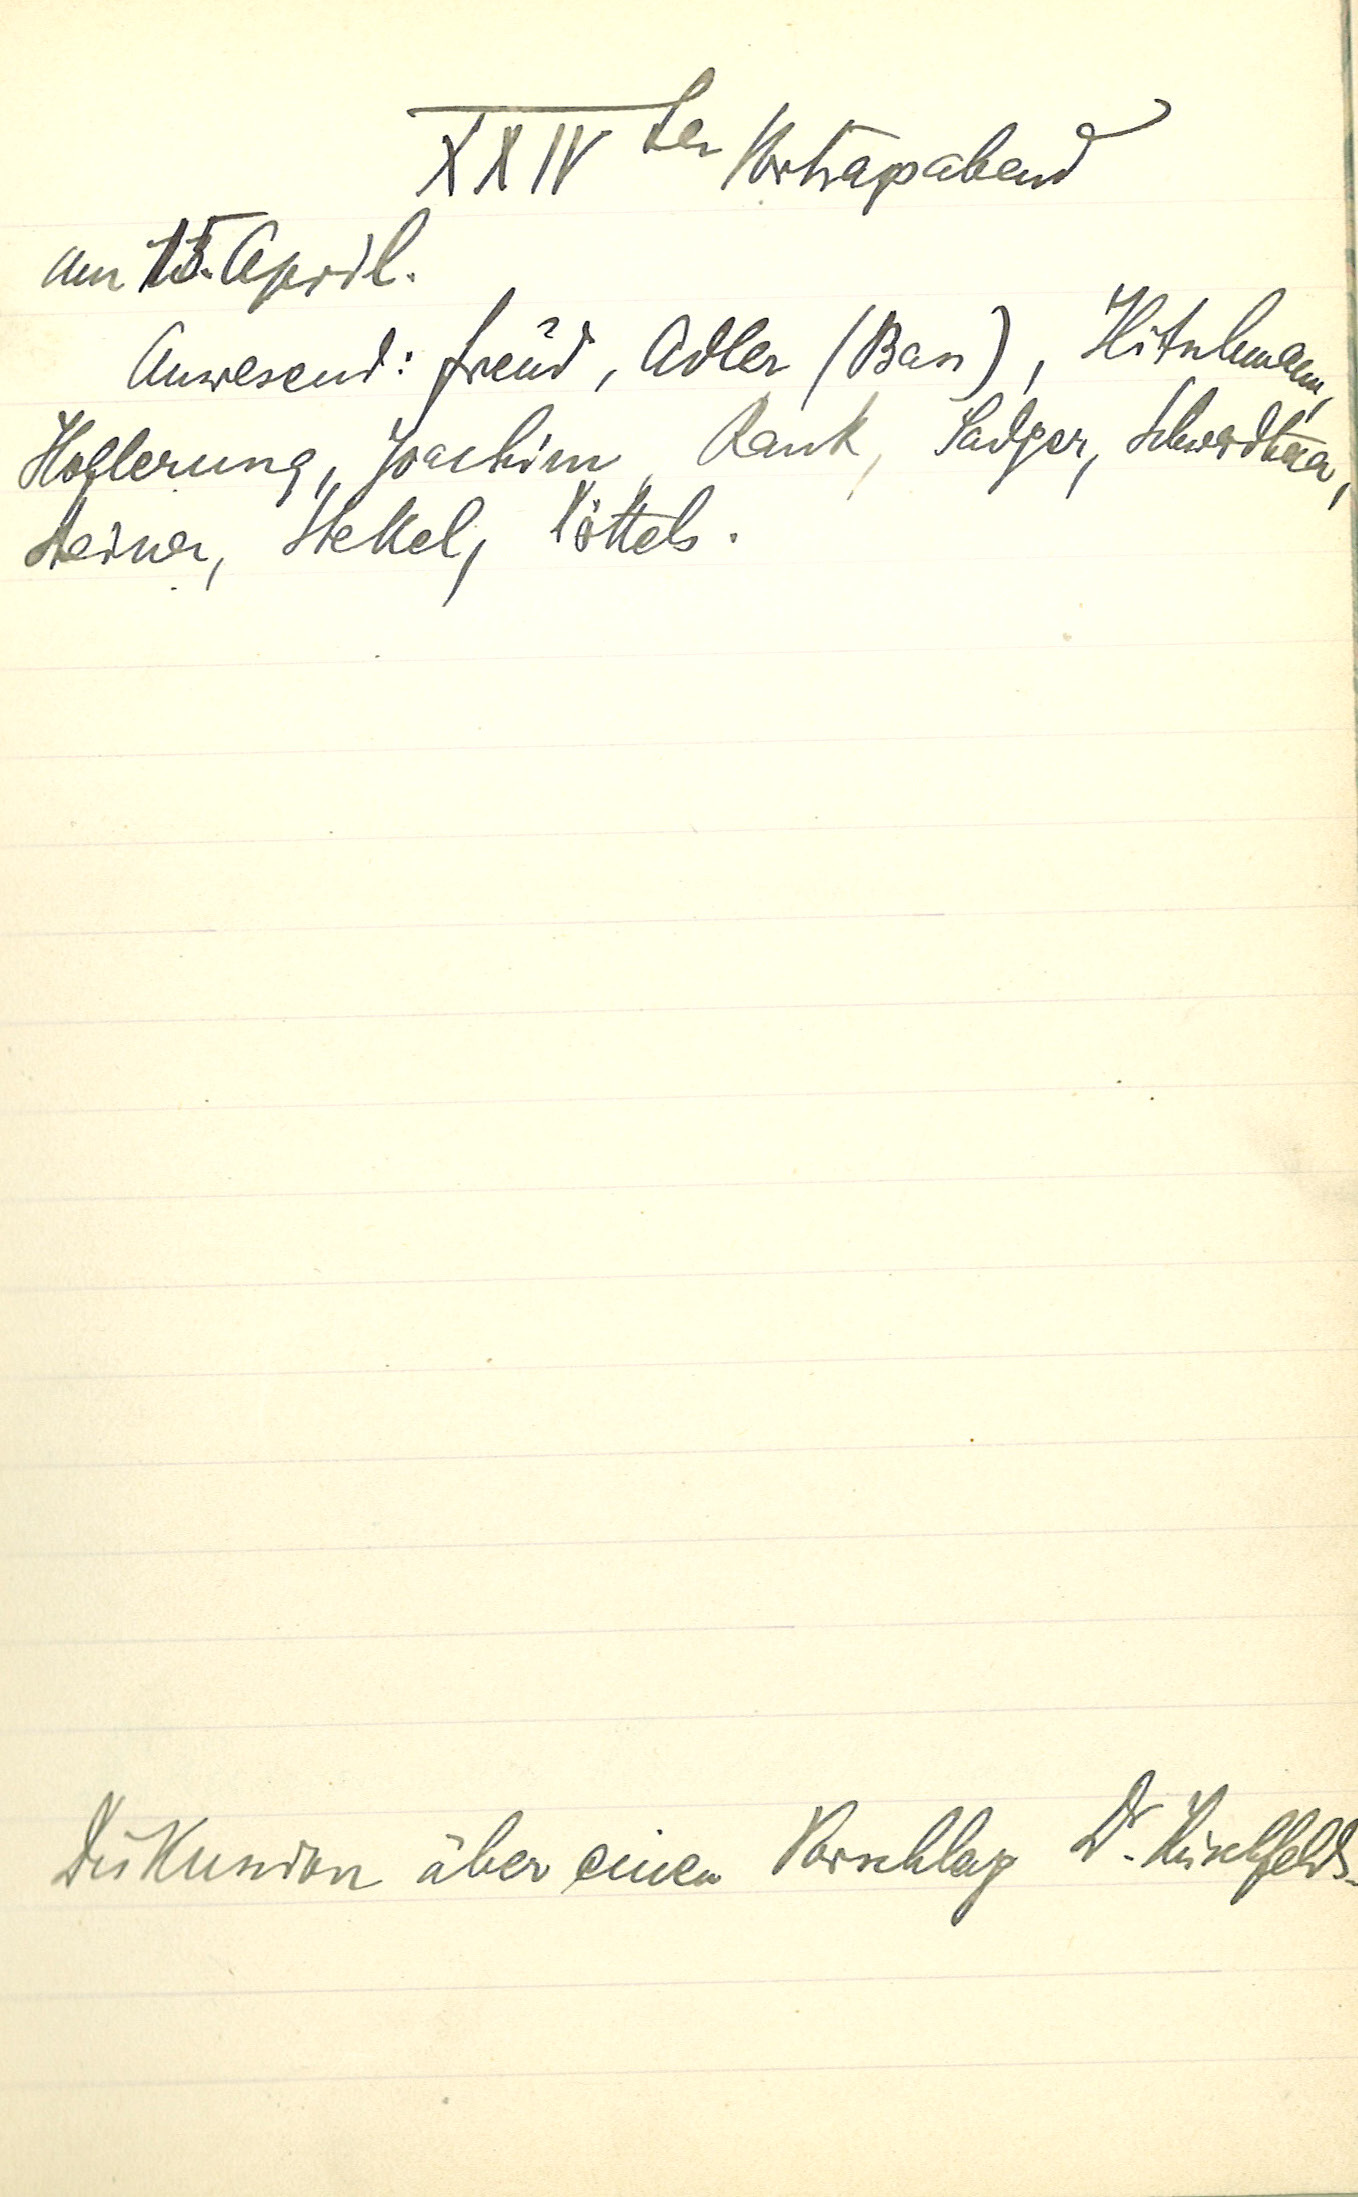 XXIV ter Vortragabend
am 15. April.
Anwesend: Freud, Adler (Bas), Hitschmann,
Hollerung, Joachim, Rank, Sadger, Schwerdtner,
Steiner, Stekel, Wittels.
Diskussion über einen Vorschlag Dr. Hirschfelds.